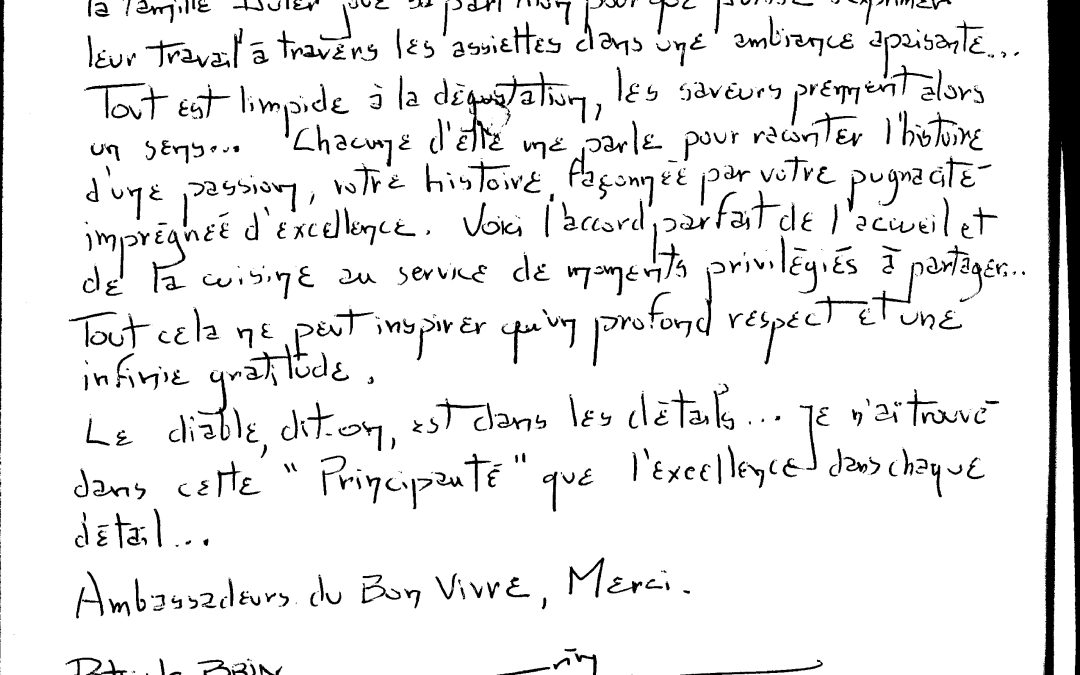 la famille joue sa partition pour que puisse s'exprimer
leur travail à travers les assiettes dans une ambiance apaisante...
Tout est limpide à la dégustation, les saveurs prennent alors
un sens... Chacune d'elle me parle pour raconter l'histoire
d'une passion, votre histoire, façonnée par votre pugnacité
imprégnée d'excellence. Voici l'accord parfait de l'accueil et
de la cuisine au service de moments privilégiés à partager...
Tout cela ne peut inspirer qu'un profond respect et une
infinie gratitude.
Le diable, dit-on, est dans les détails... je n'ai trouvé
dans cette "Principauté" que l'excellence dans chaque
détail...
Ambassadeurs du Bon Vivre, Merci.